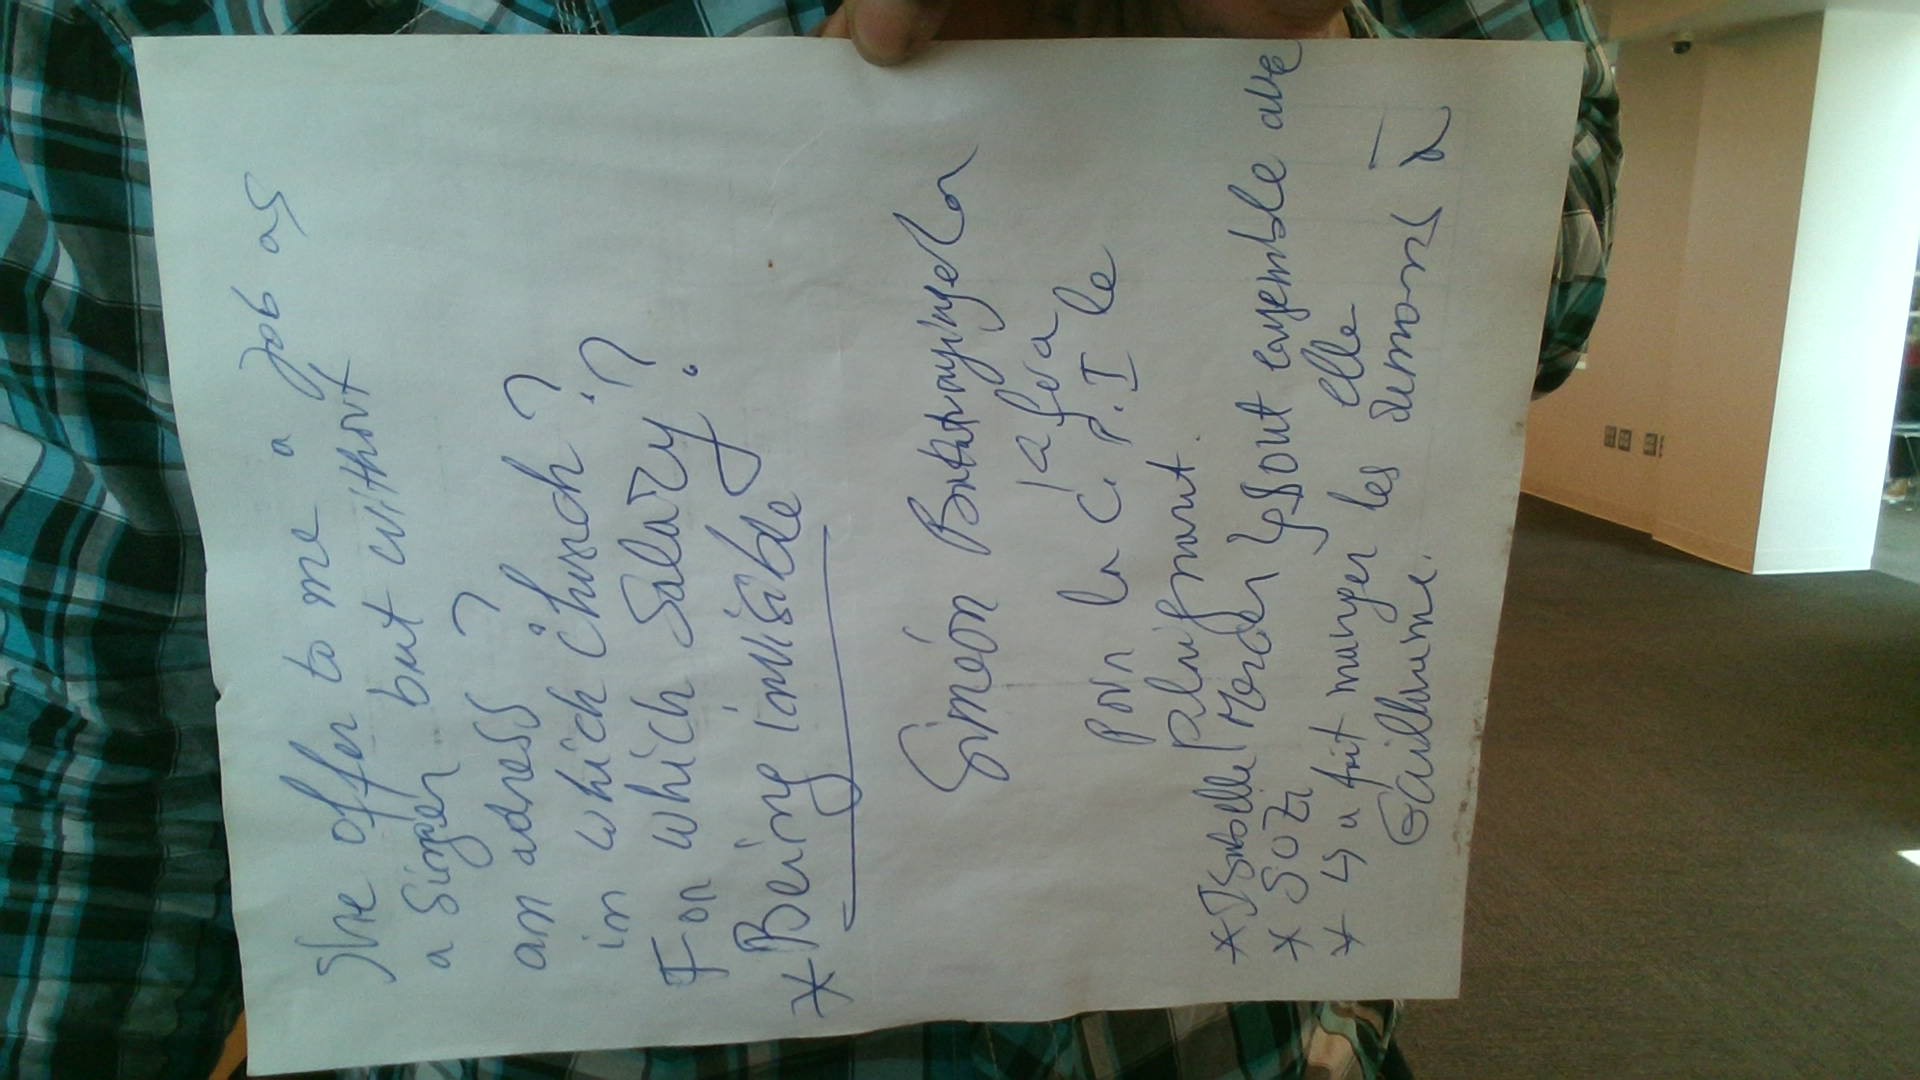 She offer to me a job as
a singer but without
an adress?
in which church??
For which Salary?
* Being invisible
Siméon
l'a fera
pour la C.P.I le
* Isabelle
* SOZI sont ensemble avec elle
* ↳ a fait manger les démons à
Guillaume.